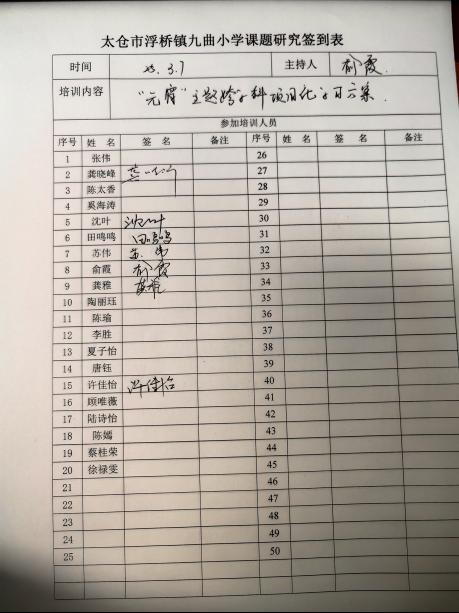 太仓市浮桥镇九曲小学课题研究签到表
时间 23.3.7 主持人 俞霞
培训内容 “元宵”主题跨学科项目化学习方案.
参加培训人员
序号 姓 名 签 名 备注 序号 姓 名 签 名 备注
1 张伟 26
2 龚晓峰 27
3 陈太香 28
4 奚海涛 29
5 沈叶 沈叶 30
6 田鸣鸣 田鸣鸣 31
7 苏伟 苏伟 32
8 俞霞 俞霞 33
9 龚雅 龚雅 34
10 陶丽珏 35
11 陈瑜 36
12 李胜 37
13 夏子怡 38
14 唐钰 39
15 许佳怡 许佳怡 40
16 顾唯薇 41
17 陆诗怡 42
18 陈嫣 43
19 蔡桂荣 44
20 徐禄雯 45
21 46
22 47
23 48
24 49
25 50